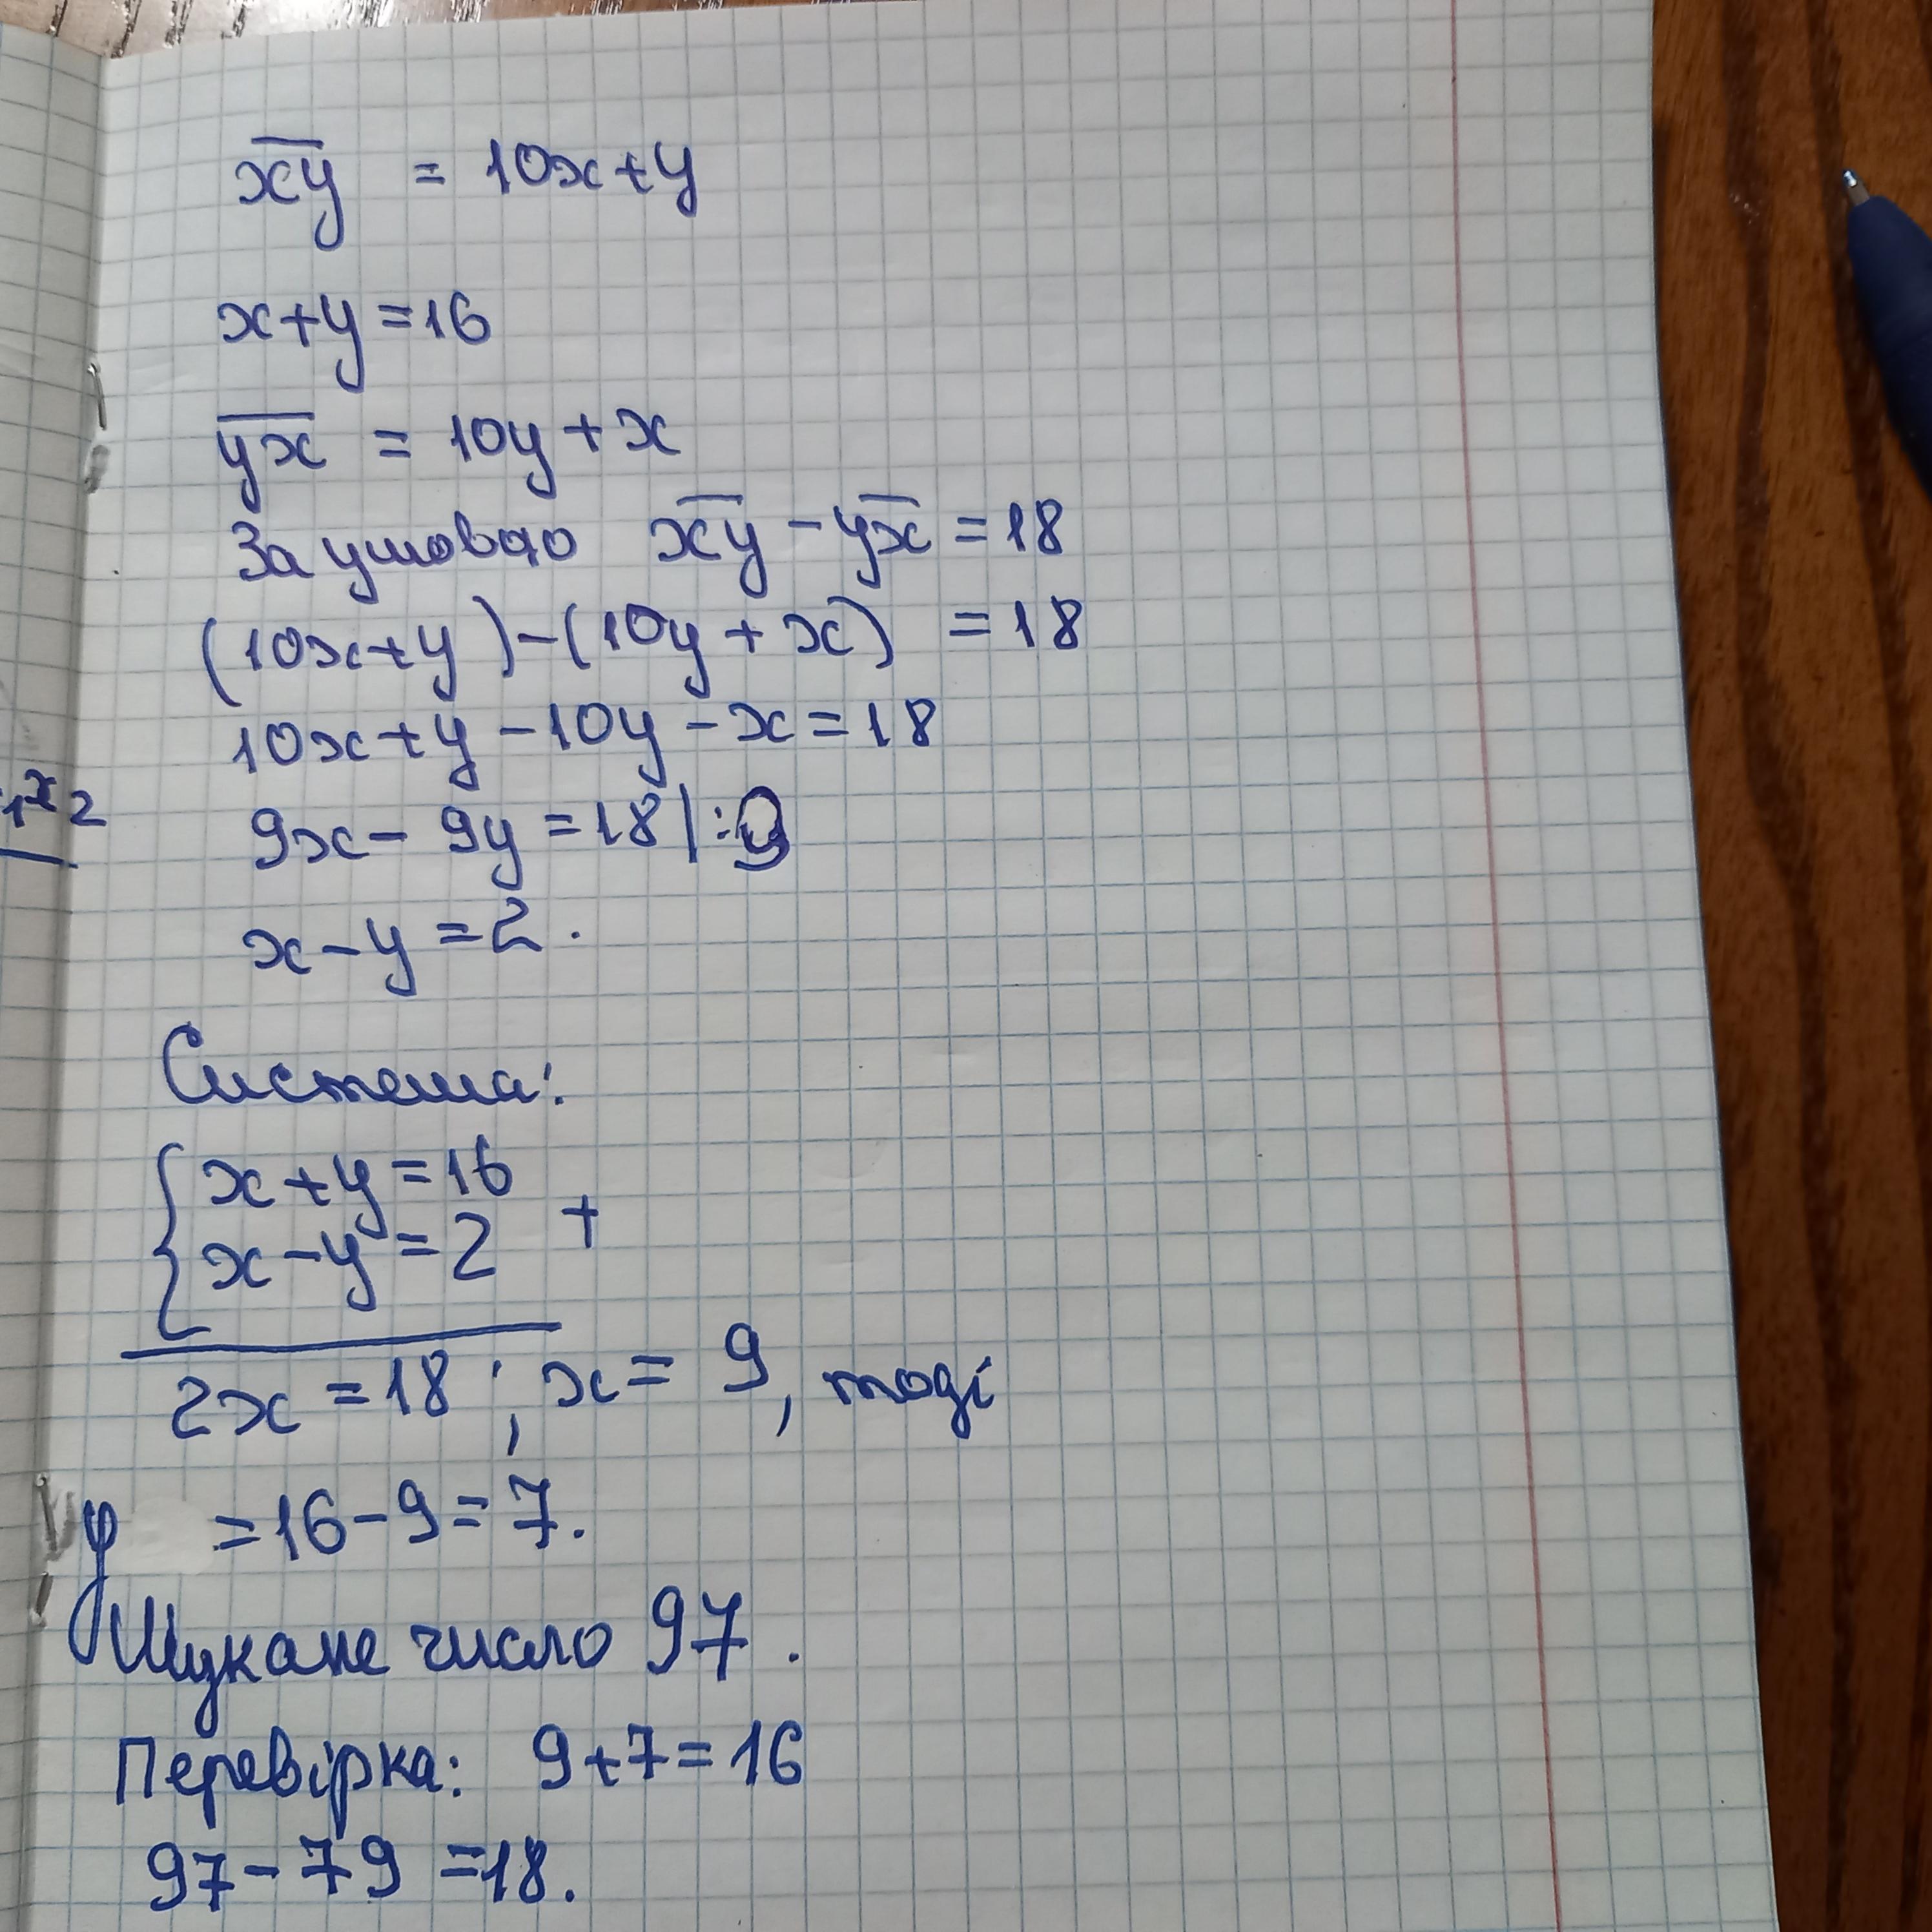 x̅y̅ = 10x+y
x+y=16
y̅x̅ = 10y+x
За умовою x̅y̅ - y̅x̅ = 18
(10x+y)-(10y+x) = 18
10x+y-10y-x=18
9x- 9y=18|:9
x-y=2.
Система:
x+y=16
x-y=2 +
2x=18; x= 9, тоді
y =16-9=7.
Шукане число 97.
Перевірка: 9+7=16
97-79 =18.